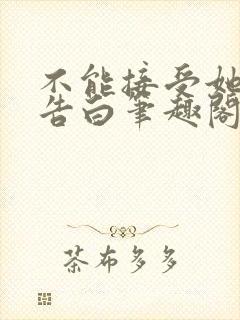 不能接受她
告白笔趣阁
茶布多多